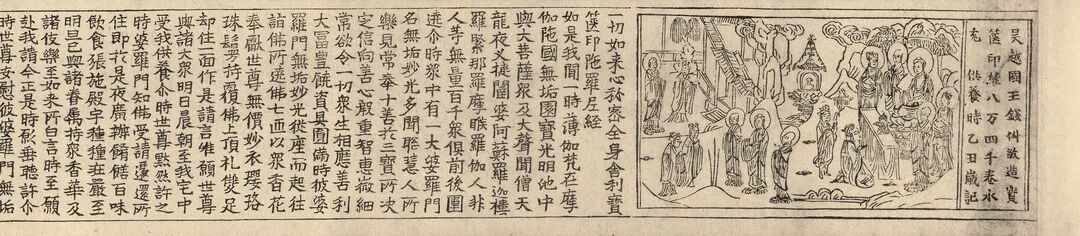 吳越國王錢俶敬造寶
篋印經八万四千卷永
充供養時乙丑歲記
一切如來心祕密全身舍利寶
篋印陁羅尼經
如是我聞一時薄伽梵在摩
伽陁國無垢園寶光明池中
與大菩薩衆及大聲聞僧天
龍夜叉揵闥婆阿蘇羅迦樓
羅緊那羅摩睺羅伽人非
人等無量百千衆俱前後圍
遶尒時衆中有一大婆羅門
名無垢妙光多聞聰慧人所
樂見常奉十善於三寶所决
定信向善心殷重智恵微細
常欲令一切衆生相應善利
大冨豊饒資具圓滿時彼婆
羅門無垢妙光從座而起往
詣佛所遶佛七迊以衆香花
奉獻世尊無價妙衣瓔珞
珠鬘持覆佛上頂礼雙足
却住一面作是請言唯願世尊
與諸大衆明日晨朝至我宅中
受我供養尒時世尊黙然許之
時婆羅門知佛受請遽還所
住即於是夜廣辦餚饍百味
飲食張施殿宇種種莊嚴至
明旦已與諸眷属持衆香華及
諸伎樂至如來所白言時至願
赴我請今正是時垂聽許尒
時世尊安慰彼婆羅門無垢